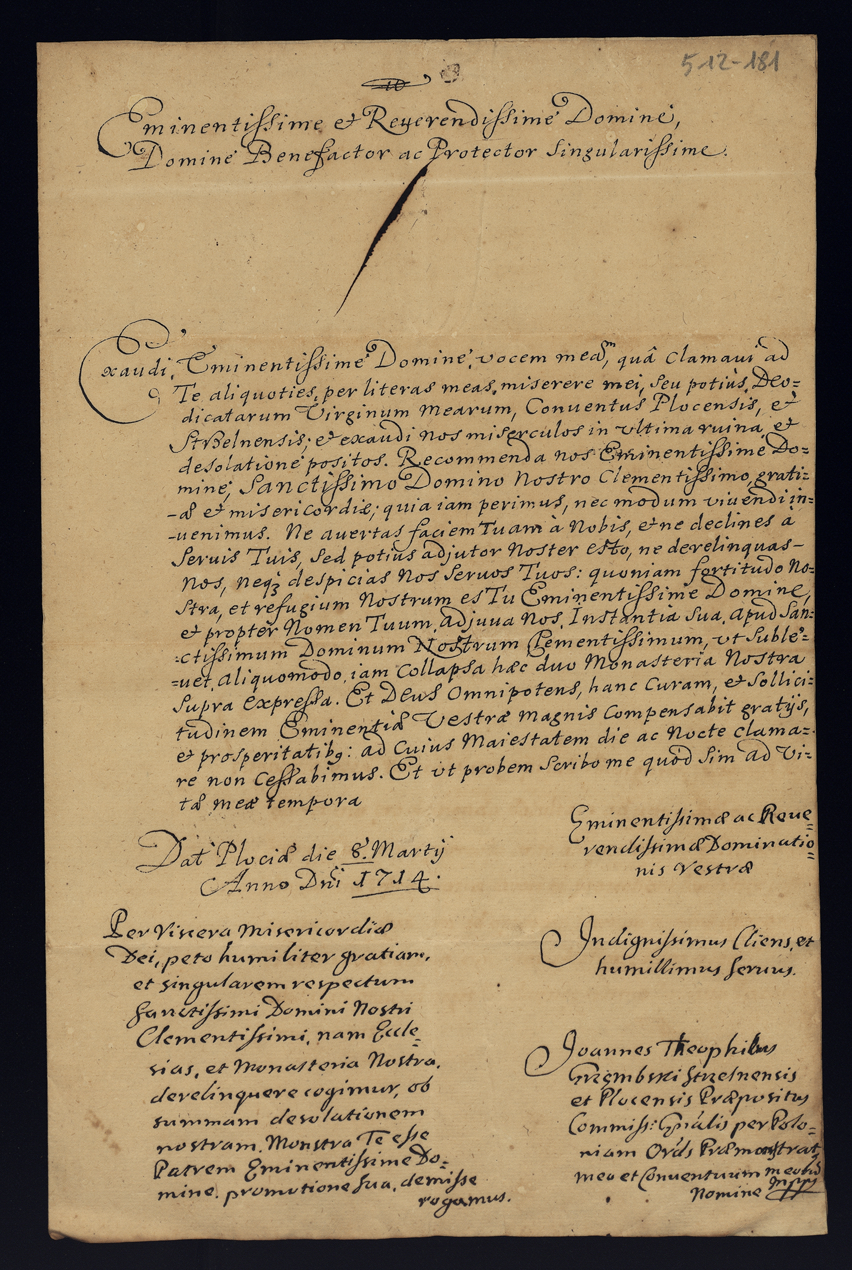 512-181
Eminentissime et Reverendissime Domine,
Domine Benefactor ac Protector Singularissime.
Exaudi, Eminentissime Domine, vocem meã, quâ clamavi ad
Te aliquoties, per literas meas, miserere mei, seu potius, Deo=
dicatarum Virginum mearum, Conventus Plocensis, et
Strzelnensis, et exaudi nos miserculos in ultima ruina, et
desolatione positos. Recommenda nos Eminentissime Do=
mine, Sanctissimo Domino Nostro Clementissimo, grati=
-æ et misericordiæ; quia iam perimus, nec modum vivendi in=
-uenimus. Ne auertas faciem Tuam à Nobis, et ne declines à
Seruis Tuis, sed potius adjutor Noster esto, ne derelinquas-
Nos, neq3 despicias Nos Seruos Tuos: quoniam fortitudo No=
stra, et refugium Nostrum es Tu Eminentissime Domine,
et propter Nomen Tuum, Adjuua Nos, Instantia Sua, Apud San=
:ctissimum Dominum Nostrum Clementissimum, ut Suble=
=uet, Aliquomodo, iam Collapsa hæc duo Monasteria Nostra
Supra Expressa. Et Deus Omnipotens, hanc Curam, et Sollici=
tudinem Eminentiæ Vestræ magnis Compensabit gratijs,
et prosperitatib9: ad Cuius Maiestatem die ac Nocte clama=
re non Cessabimus. Et ut probem Scribo me quòd Sim ad Vi=
tæ meæ tempora
Eminentissimæ ac Reue=
rendissimæ Dominatio=
nis Vestræ
Dat Plociæ die 8. Martij
Anno Dni 1714.
Per Viscera misericordiæ
Dei, peto humiliter gratiam,
et singularem respectum
Sanctissimi Domini Nostri
Clementissimi, nam Eccle=
sias, et Monasteria Nostra,
derelinquere cogimur, ob
summam desolationem
nostram. Monstra Te esse
Patrem Eminentissime Do=
mine. promotione sua, demisse
rogamus.
Indignissimus Cliens, et
humillimus seruus.
Joannes Theophilus
Grzembski Strzelnensis
et Plocensis Præpositus
Commiss: Gnãlis per Polo=
niam Ords Præmonstrat
meo et Conventuum meorũ
Nomine mppr